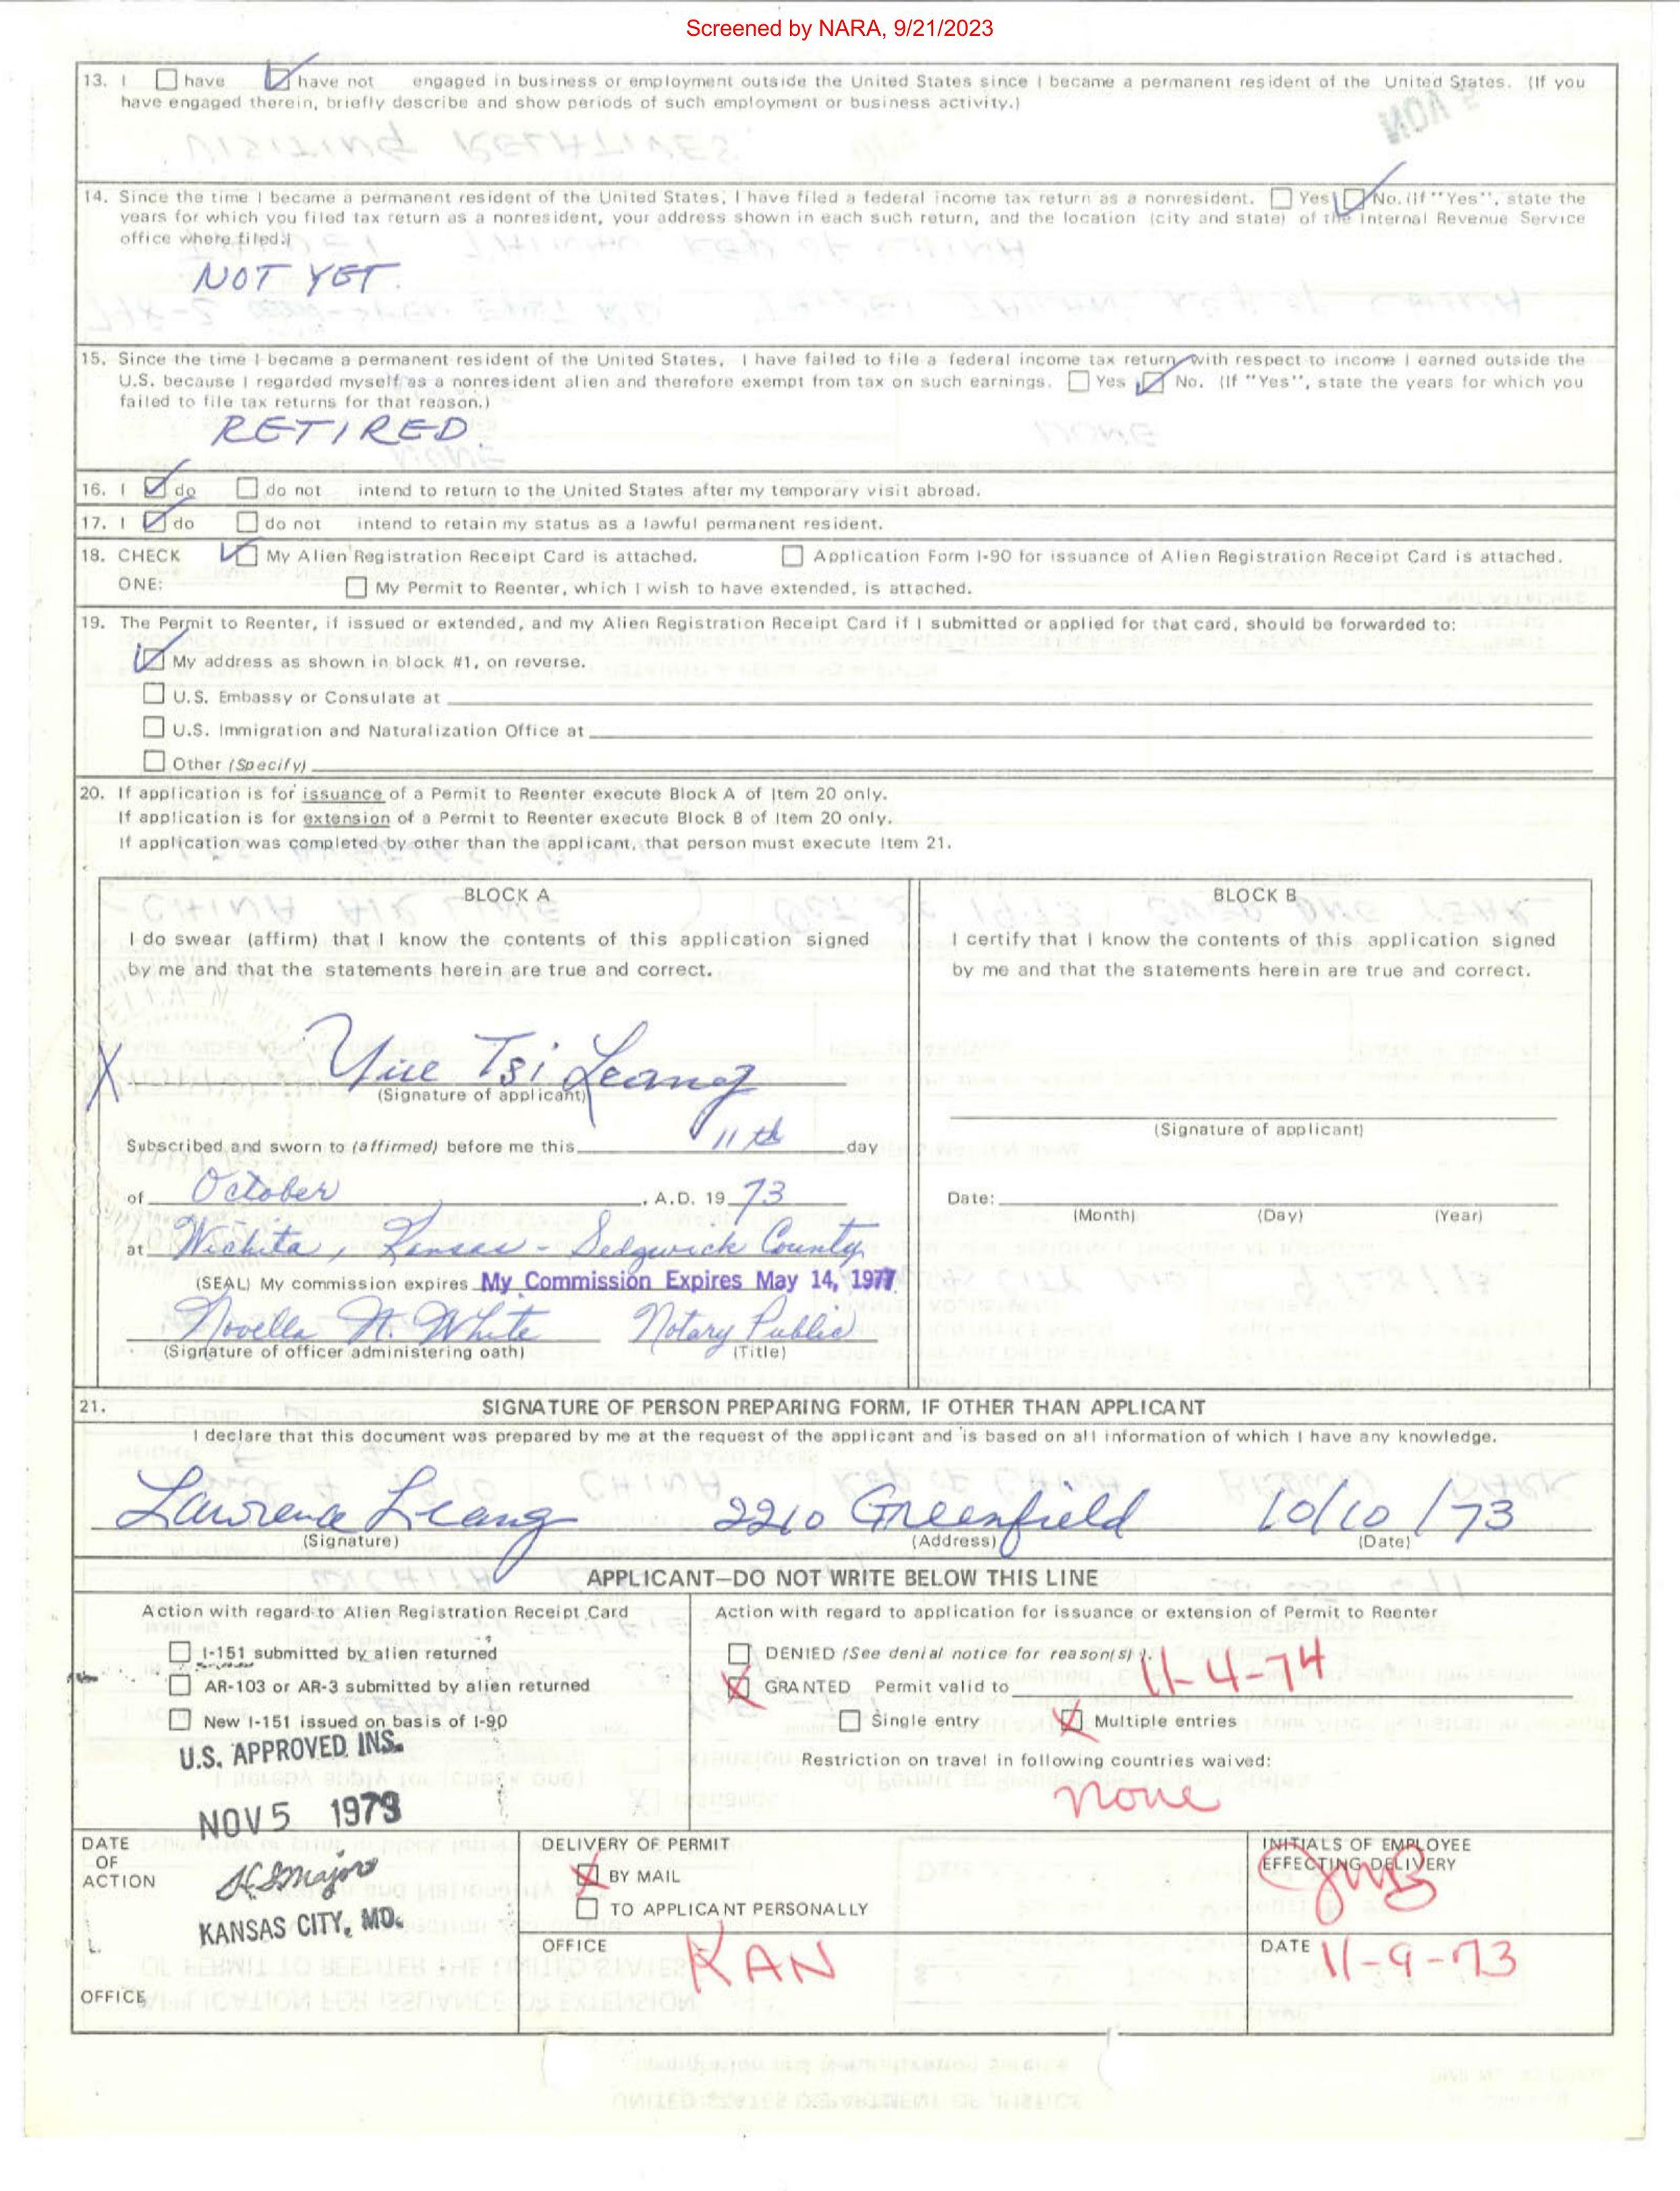 Screened by NARA, 9/21/2023
13. I ☐ have ☑ have not engaged in business or employment outside the United States since I became a permanent resident of the United States. (If you
have engaged therein, briefly describe and show periods of such employment or business activity.)
NOV 5
14. Since the time I became a permanent resident of the United States, I have filed a federal income tax return as a nonresident. ☐ Yes ☑ No. (If "Yes", state the
years for which you filed tax return as a nonresident, your address shown in each such return, and the location (city and state) of the Internal Revenue Service
office where filed.)
NOT YET.
15. Since the time I became a permanent resident of the United States, I have failed to file a federal income tax return with respect to income I earned outside the
U.S. because I regarded myself as a nonresident alien and therefore exempt from tax on such earnings. ☐ Yes ☑ No. (If "Yes", state the years for which you
failed to file tax returns for that reason.)
RETIRED.
16. I ☑ do ☐ do not intend to return to the United States after my temporary visit abroad.
17. I ☑ do ☐ do not intend to retain my status as a lawful permanent resident.
18. CHECK ☑ My Alien Registration Receipt Card is attached. ☐ Application Form I-90 for issuance of Alien Registration Receipt Card is attached.
ONE: ☐ My Permit to Reenter, which I wish to have extended, is attached.
19. The Permit to Reenter, if issued or extended, and my Alien Registration Receipt Card if I submitted or applied for that card, should be forwarded to:
☑ My address as shown in block #1, on reverse.
☐ U.S. Embassy or Consulate at
☐ U.S. Immigration and Naturalization Office at
☐ Other (Specify)
20. If application is for issuance of a Permit to Reenter execute Block A of Item 20 only.
If application is for extension of a Permit to Reenter execute Block B of Item 20 only.
If application was completed by other than the applicant, that person must execute Item 21.
BLOCK A
I do swear (affirm) that I know the contents of this application signed
by me and that the statements herein are true and correct.
X Yue Tsi Leang
(Signature of applicant)
Subscribed and sworn to (affirmed) before me this 11th day
of October, A.D. 19 73
at Wichita, Kansas - Sedgwick County
(SEAL) My commission expires My Commission Expires May 14, 1977
Novella H. White Notary Public
(Signature of officer administering oath) (Title)
BLOCK B
I certify that I know the contents of this application signed
by me and that the statements herein are true and correct.
(Signature of applicant)
Date:
(Month) (Day) (Year)
21. SIGNATURE OF PERSON PREPARING FORM, IF OTHER THAN APPLICANT
I declare that this document was prepared by me at the request of the applicant and is based on all information of which I have any knowledge.
Lawrence Leang 2210 Greenfield 10/10/73
(Signature) (Address) (Date)
APPLICANT—DO NOT WRITE BELOW THIS LINE
Action with regard to Alien Registration Receipt Card
☐ I-151 submitted by alien returned
☐ AR-103 or AR-3 submitted by alien returned
☐ New I-151 issued on basis of I-90
U.S. APPROVED INS.
NOV 5 1973
Action with regard to application for issuance or extension of Permit to Reenter
☐ DENIED (See denial notice for reason(s) ).
☒ GRANTED Permit valid to 11-4-74
☐ Single entry ☒ Multiple entries
Restriction on travel in following countries waived:
none
DATE
OF
ACTION
KANSAS CITY, MO.
OFFICE
DELIVERY OF PERMIT
☒ BY MAIL
☐ TO APPLICANT PERSONALLY
INITIALS OF EMPLOYEE
EFFECTING DELIVERY
JMB
OFFICE KAN
DATE 11-9-73